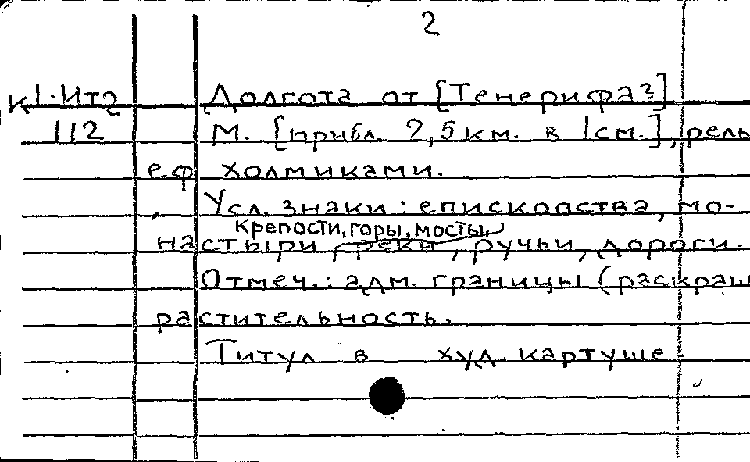 2
К 1-Ит2 Долгота от [Тенерифа?]
112 М. [прибл. 2,5 км. в 1 см.], рель
еф холмиками.
Усл. знаки: епископства, мо-
крепости, горы, мосты,
настыри, реки, ручьи, дороги.
Отмеч.: адм. границы (раскраш
растительность.
Титул в худ. картуше